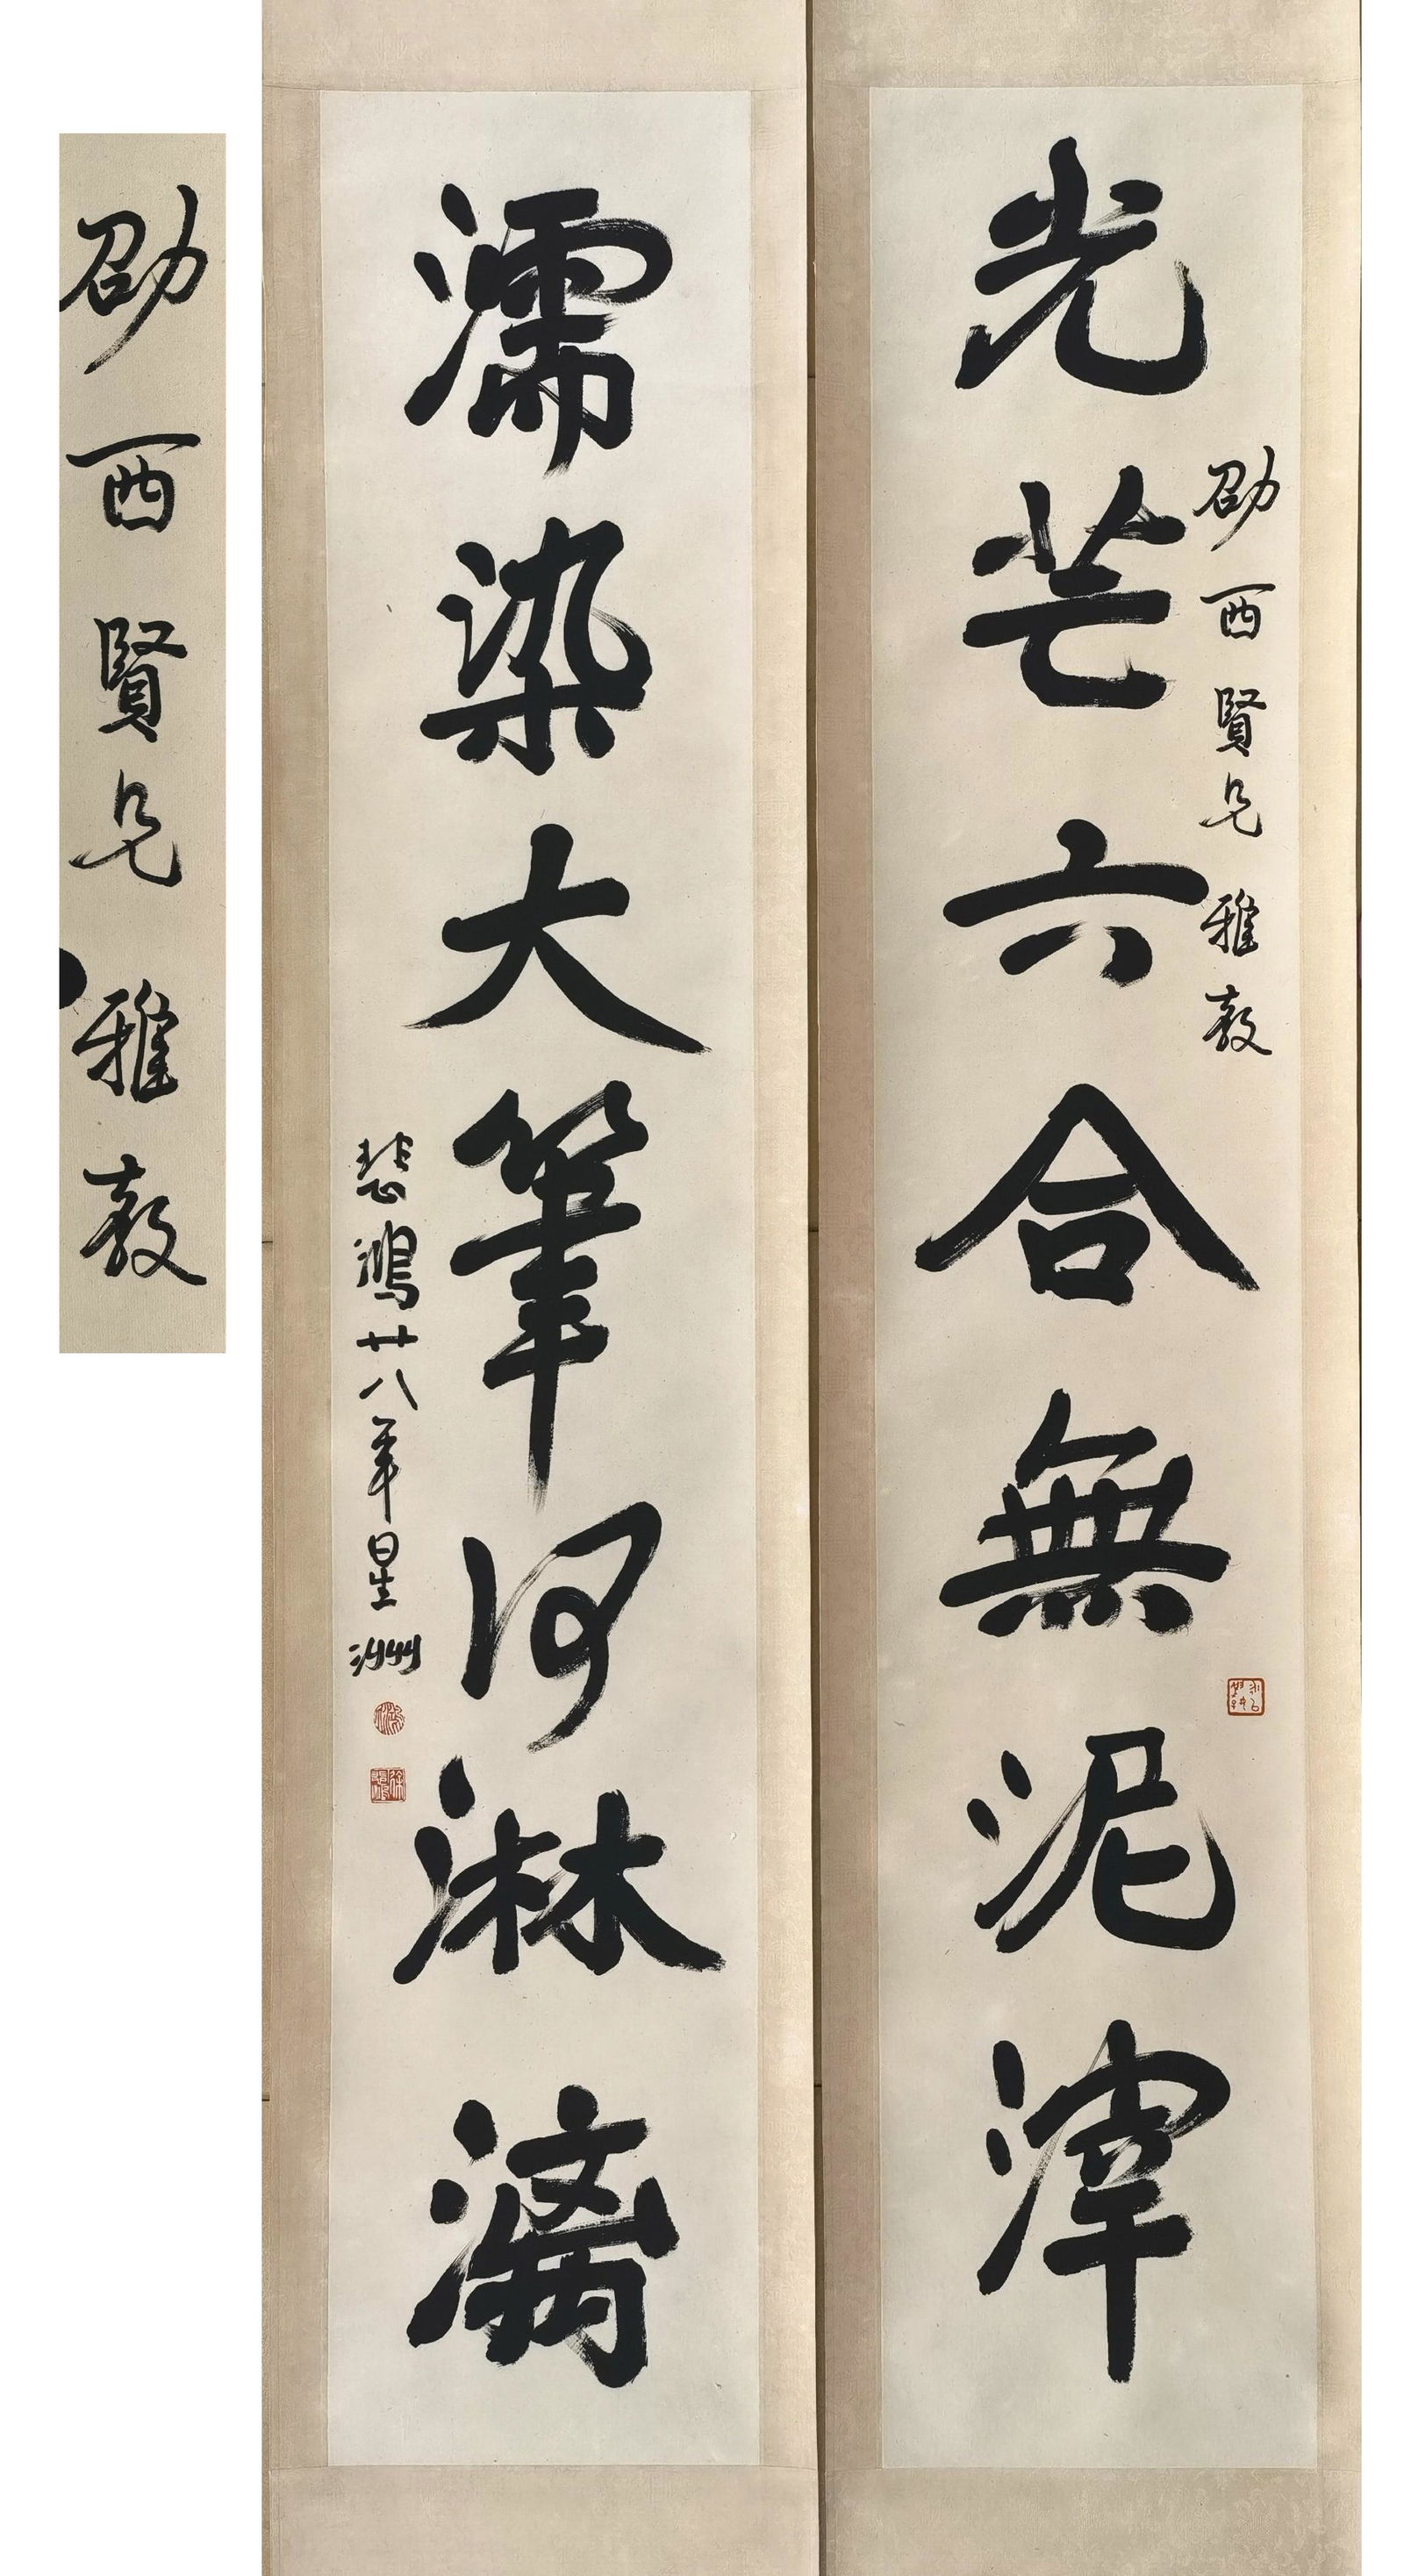 劭西賢兄 雅教
光芒六合無泥滓
濡染大筆何淋漓
悲鴻廿八年星洲
劭西賢兄 雅教